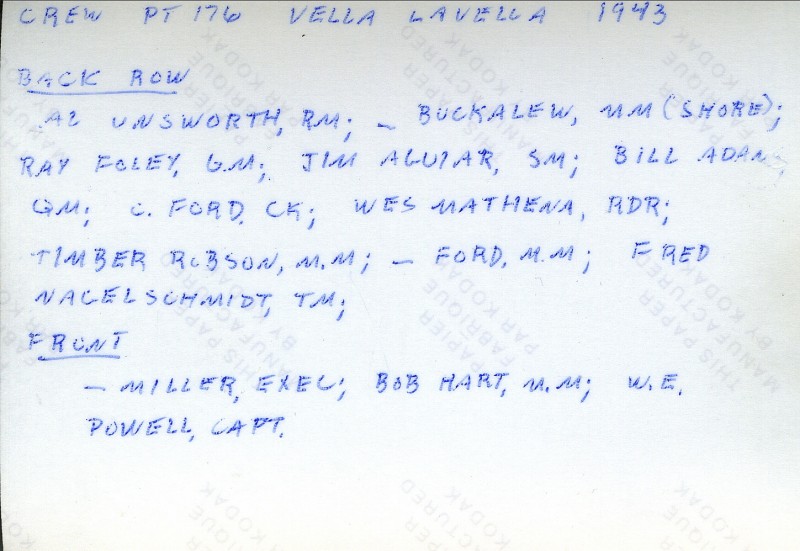 CREW PT 176 VELLA LAVELLA 1943
BACK ROW
AL UNSWORTH, RM; – BUCKALEW, MM (SHORE);
RAY FOLEY, GM; JIM AGUIAR, SM; BILL ADAMS,
QM; C. FORD, CK; WES MATHENA, RDR;
TIMBER ROBSON, M.M; – FORD, M.M; FRED
NAGELSCHMIDT, TM;
FRONT
– MILLER, EXEC; BOB HART, M.M; W.E.
POWELL, CAPT.
THIS PAPER
MANUFACTURED
BY KODAK
PAPIER
FABRIQUE
PAR KODAK